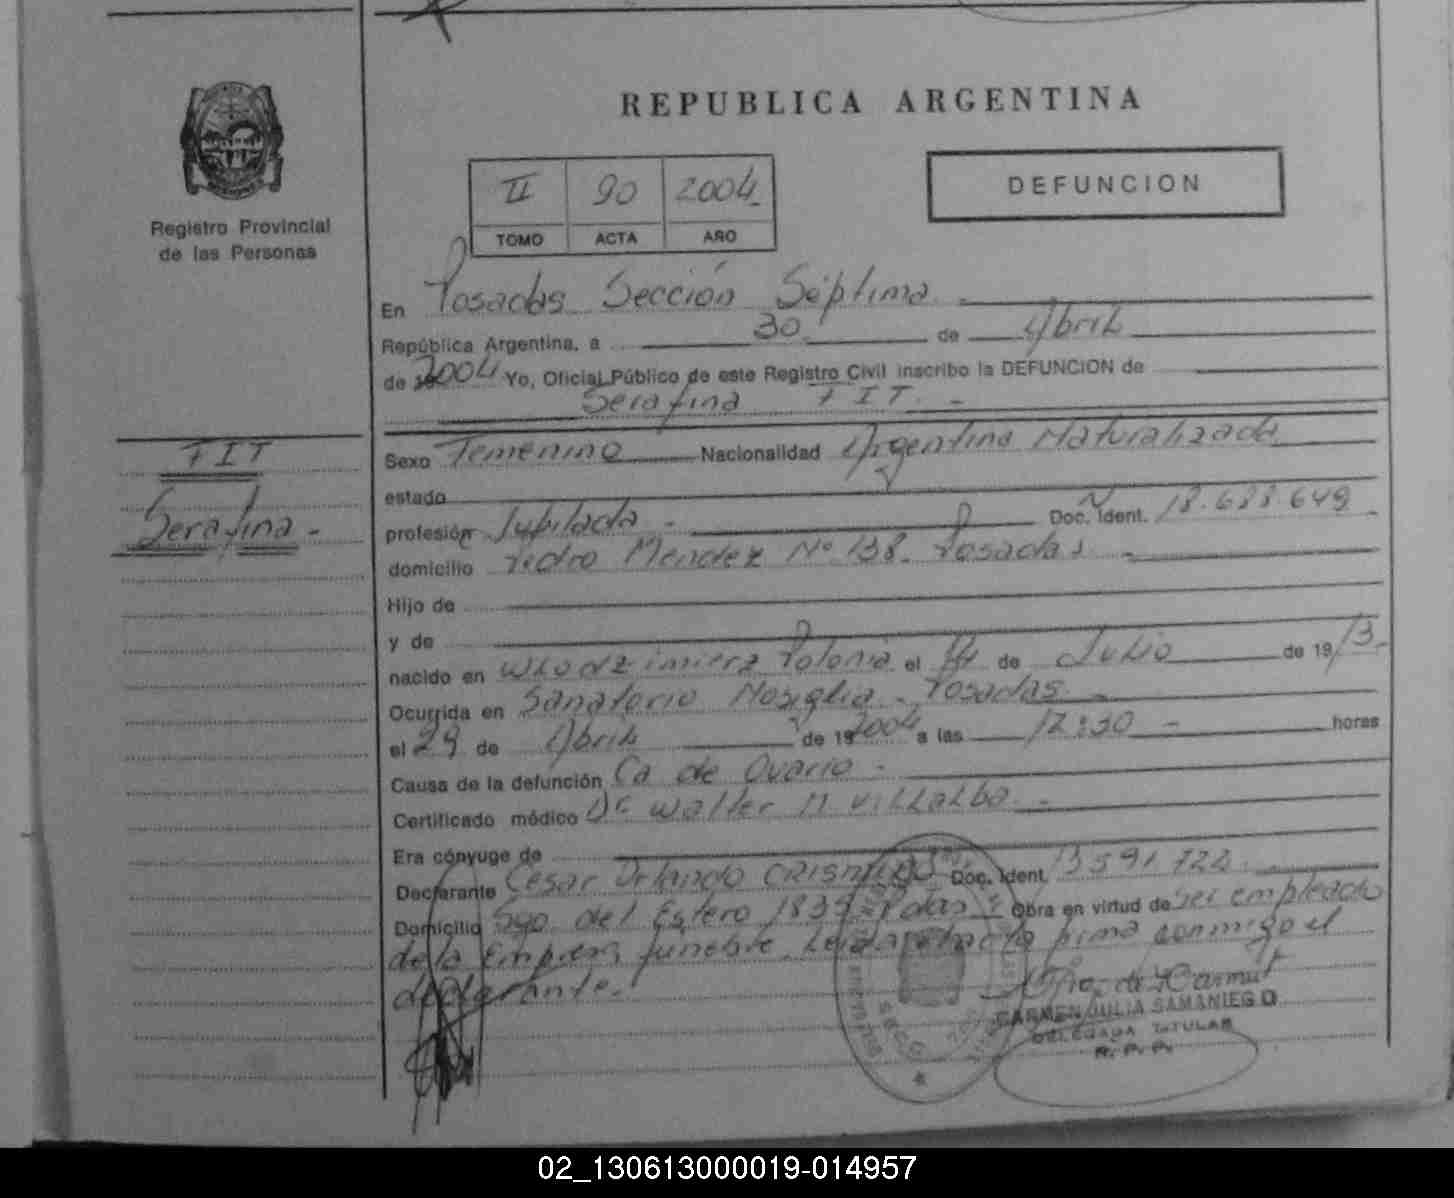 REPUBLICA ARGENTINA
II 90 2004
TOMO ACTA AÑO
DEFUNCION
Registro Provincial
de las Personas
En Posadas Sección Séptima.
República Argentina, a 30 de Abril
de 2004 Yo, Oficial Público de este Registro Civil inscribo la DEFUNCION de
Serafina FIT. -
FIT
Serafina -
Sexo Femenino Nacionalidad Argentina Naturalizada
estado
profesión Jubilada - Doc. Ident. 18.688.649
domicilio Pedro Mendez Nº 138. Posadas
Hijo de
y de
nacido en Wlodzimierz Polonia el 14 de Julio de 1913.-
Ocurrida en Sanatorio Mosiglia - Posadas
el 29 de Abril de 2004 a las 12:30 - horas
Causa de la defunción Ca de Ovario -
Certificado médico Dr Walter Villalba. -
Era cónyuge de
Declarante Cesar Orlando Doc. Ident.
Domicilio Sgo. del Estero Obra en virtud de ser empleado
de la Empresa funebre. Leida el acta firma conmigo el
declarante.
CARMEN JULIA SAMANIEGO
DELEGADA TITULAR
R. P. P.
02_130613000019-014957